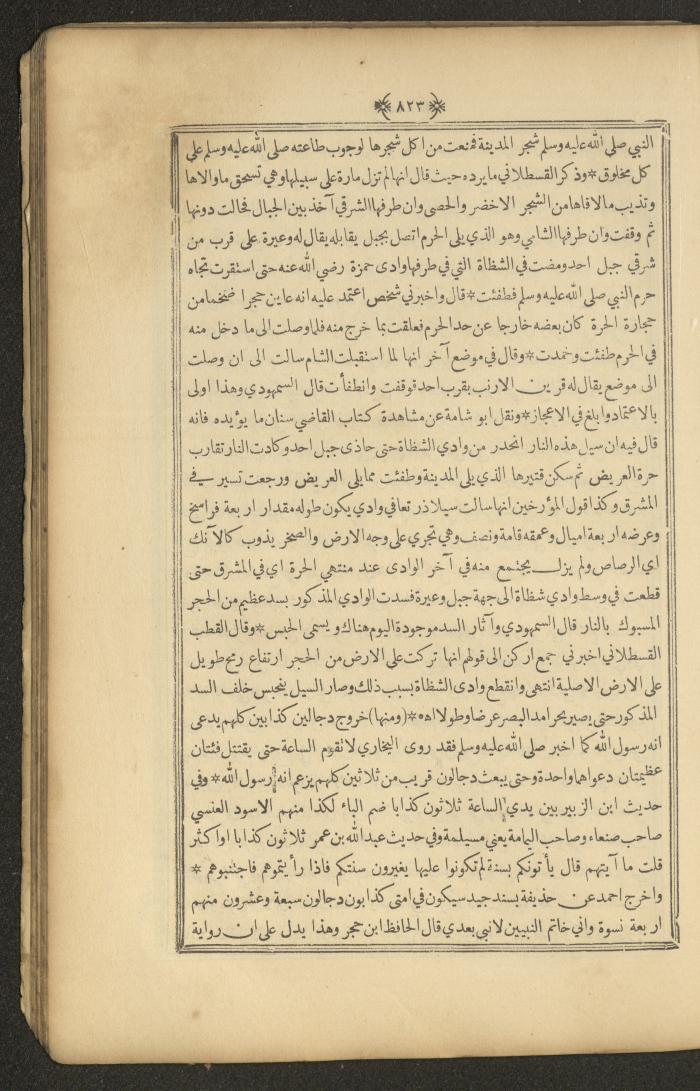 ٨٢٣
النبي صلى الله عليه وسلم شجر المدينة فمنعت من اكل شجرها لوجوب طاعته صلى الله عليه وسلم على
كل مخلوق * وذكر القسطلاني ما يرده حيث قال انها لم تزل مارة على سبيلها وهي تسحق ما والاها
وتذيب ما لاقاها من الشجر الاخضر والحصى وان طرفها الشرقي آخذ بين الجبال فحالت دونها
ثم وقفت وان طرفها الشامي وهو الذي يلى الحرم اتصل بجبل يقابله يقال له وعيرة على قرب من
شرقي جبل احد ومضت في الشظاة التي في طرفها وادى حمزة رضي الله عنه حتى استقرت تجاه
حرم النبي صلى الله عليه وسلم فطفئت * قال واخبرني شخص اعتمد عليه انه عاين حجرا ضخما من
حجارة الحرة كان بعضه خارجا عن حد الحرم فعلقت بما خرج منه فلما وصلت الى ما دخل منه
في الحرم طفئت وخمدت * وقال في موضع آخر انها لما استقبلت الشام سالت الى ان وصلت
الى موضع يقال له قرين الارنب بقرب احد فوقفت وانطفأت قال السمهودي وهذا اولى
بالاعتماد وابلغ في الاعجاز * ونقل ابو شامة عن مشاهدة كتاب القاضي سنان ما يؤيده فانه
قال فيه ان سيل هذه النار انحدر من وادي الشظاة حتى حاذى جبل احد وكادت النار تقارب
حرة العريض ثم سكن قتيرها الذي يلى المدينة وطفئت مما يلى العريض ورجعت تسير في
المشرق وكذا قول المؤرخين انها سالت سيلا ذرتعا في وادي يكون طوله مقدار اربعة فراسخ
وعرضه اربعة اميال وعمقه قامة ونصف وهي تجري على وجه الارض والصخر يذوب كالآنك
اي الرصاص ولم يزل يجتمع منه في آخر الوادى عند منتهي الحرة اي في المشرق حتى
قطعت في وسط وادي شظاة الى جهة جبل وعيرة فسدت الوادي المذكور بسد عظيم من الحجر
المسبوك بالنار قال السمهودي وآثار السد موجودة اليوم هناك ويسمى الحبس * وقال القطب
القسطلاني اخبرني جمع اركن الى قولهم انها تركت على الارض من الحجر ارتفاع رمح طويل
على الارض الاصلية انتهى وانقطع وادى الشظاة بسبب ذلك وصار السيل ينحبس خلف السد
المذكور حتى يصير بحرا مد البصر عرضا وطولا اه * (ومنها) خروج دجالين كذابين كلهم يدعى
انه رسول الله كما اخبر صلى الله عليه وسلم فقد روى البخاري لا تقوم الساعة حتى يقتتل فئتان
عظيمتان دعواهما واحدة وحتى يبعث دجالون قريب من ثلاثين كلهم يزعم انه رسول الله * وفي
حديث ابن الزبير بين يدي الساعة ثلاثون كذابا ضم الباء لكذا منهم الاسود العنسي
صاحب صنعاء وصاحب اليمامة يعني مسيلمة وفي حديث عبد الله بن عمر ثلاثون كذابا او اكثر
قلت ما آيتهم قال يأتونكم بسنة لم تكونوا عليها يغيرون سنتكم فاذا رأيتموهم فاجتنبوهم *
واخرج احمد عن حذيفة بسند جيد سيكون في امتى كذابون دجالون سبعة وعشرون منهم
اربعة نسوة واني خاتم النبيين لا نبي بعدي قال الحافظ ابن حجر وهذا يدل على ان رواية